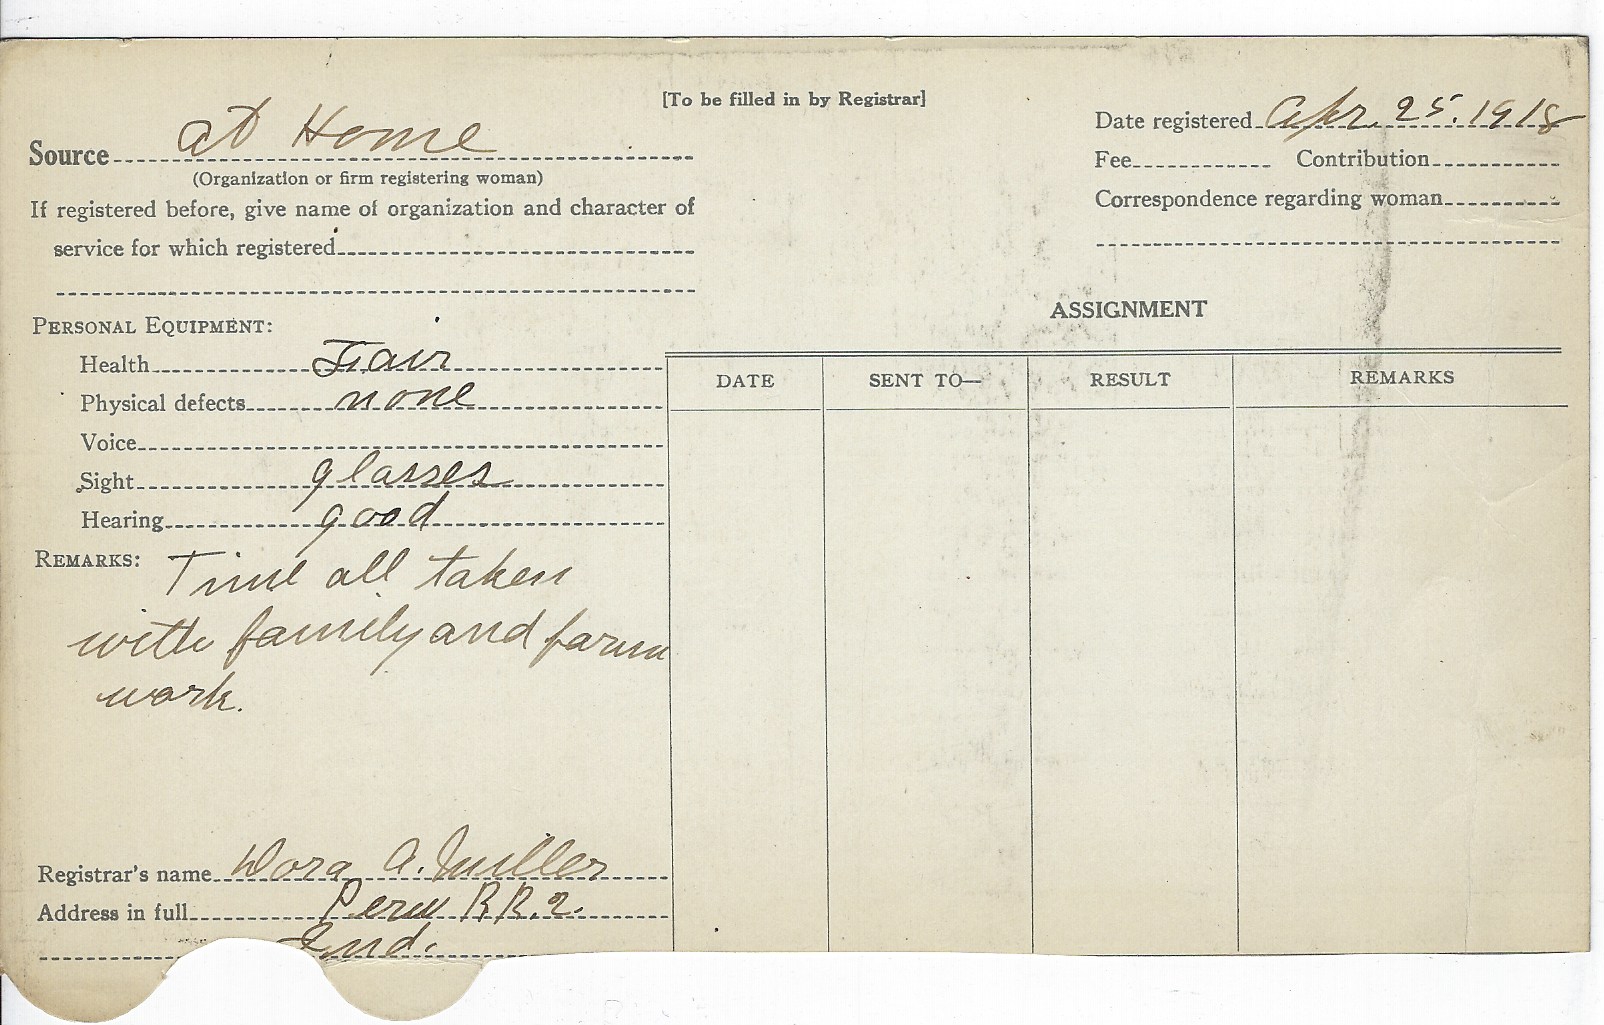 [To be filled in by Registrar]
Source at Home
(Organization or firm registering woman)
If registered before, give name of organization and character of
service for which registered
Date registered Apr. 25. 1918
Fee Contribution
Correspondence regarding woman
ASSIGNMENT
PERSONAL EQUIPMENT:
Health Fair
Physical defects none
Voice
Sight glasses
Hearing good
DATE SENT TO— RESULT REMARKS
REMARKS: Time all taken
with family and farm
work.
Registrar's name Dora A. Miller
Address in full Peru R.R. 2.
Ind.